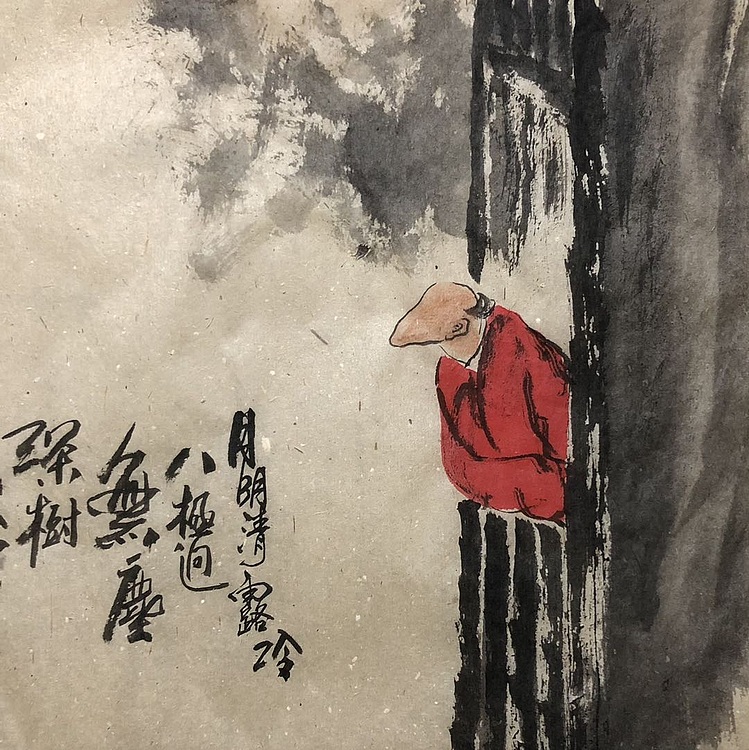 月明清露冷
八極迥
無塵
樹